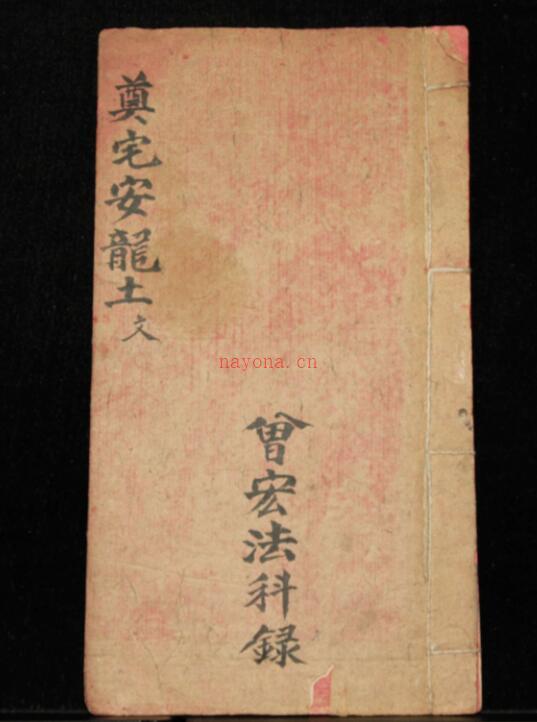 奠宅安龍土文
曾宏法科録
nayona.cn